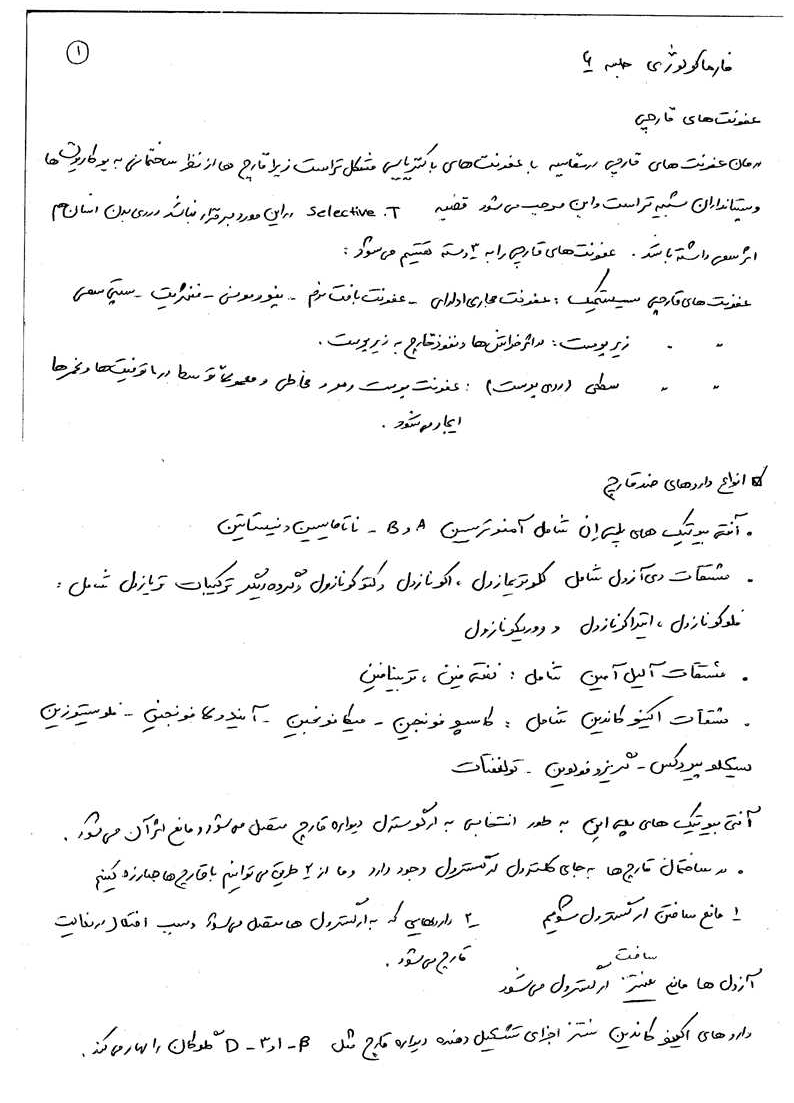 ۱
فارماکولوژی جلسه ۶
عفونت‌های قارچی
درمان عفونت های قارچی در مقایسه با عفونت‌های باکتریایی مشکل تر است زیرا قارچ ها از نظر ساختمانی به یوکاریوت‌ها
و پستانداران شبیه تر است و این موجب می شود قضیه Selective .T در این مورد برقرار نباشد و روی بدن انسان هم
اثر سمی داشته باشد. عفونت‌های قارچی را به ۳ دسته تقسیم می شود:
عفونت های قارچی سیستمیک: عفونت مجاری ادراری - عفونت بافت نرم - پنومونی - مننژیت - سپتی سمی
" " زیر پوست: در اثر خراش ها و نفوذ قارچ به زیر پوست.
" " سطحی (روی پوست): عفونت پوست و مو و مخاطی و معمولاً توسط درماتوفیت‌ها و مخمرها
ایجاد می شود.
انواع داروهای ضد قارچ
. آنتی بیوتیک های پلی ان شامل آمفوتریسین A و B - ناتامایسین و نیستاتین
. مشتقات دی آزول شامل کلوتریمازول، اکونازول و کتوکونازول و گروه دیگر ترکیبات تریازول شامل:
فلوکونازول، ایتراکونازول و ووریکونازول
. مشتقات آلیل آمین شامل: نفتی فین، تربینافین
. مشتقات اکینوکاندین شامل: کاسپوفونجین - میکافونجین - آنیدولافونجین - فلوسیتوزین
سیکلوپیروکس - گریزوفولوین - تولنفتات
آنتی بیوتیک های پلی این به طور انتخابی به ارگوسترول دیواره قارچ متصل می شود و مانع اثر آن می شود.
. در ساختمان قارچ‌ها به جای کلسترول ارگسترول وجود دارد و ما از ۲ طریق می توانیم با قارچ ها مبارزه کنیم
۱ مانع ساختن ارگسترول شویم ۲- داروهایی که به ارگسترول ها متصل می شود و سبب اختلال در فعالیت
قارچ می شود.
ساخت
آزول ها مانع سنتز ارگسترول می شود
داروهای اکینوکاندین سنتز اجزای تشکیل دهنده دیواره قارچ مثل β - ۱و۳ - D گلوکان را مهار می کند.